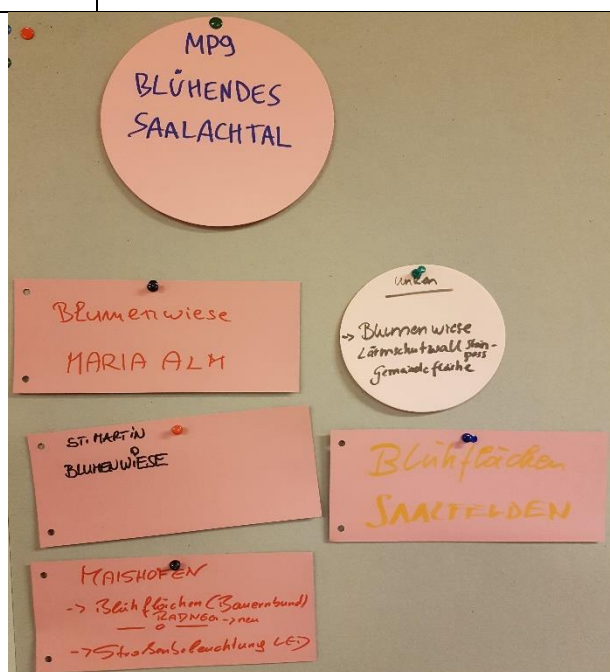 MP9
BLÜHENDES
SAALACHTAL
Blumenwiese
MARIA ALM
unken
-> Blumenwiese
Lärmschutzwall Stein-
pass
Gemeindefläche
ST. MARTIN
BLUMENWIESE
Blühflächen
SAALFELDEN
MAISHOFEN
-> Blühflächen (Bauernbund)
-> neu
-> Straßenbeleuchtung LED